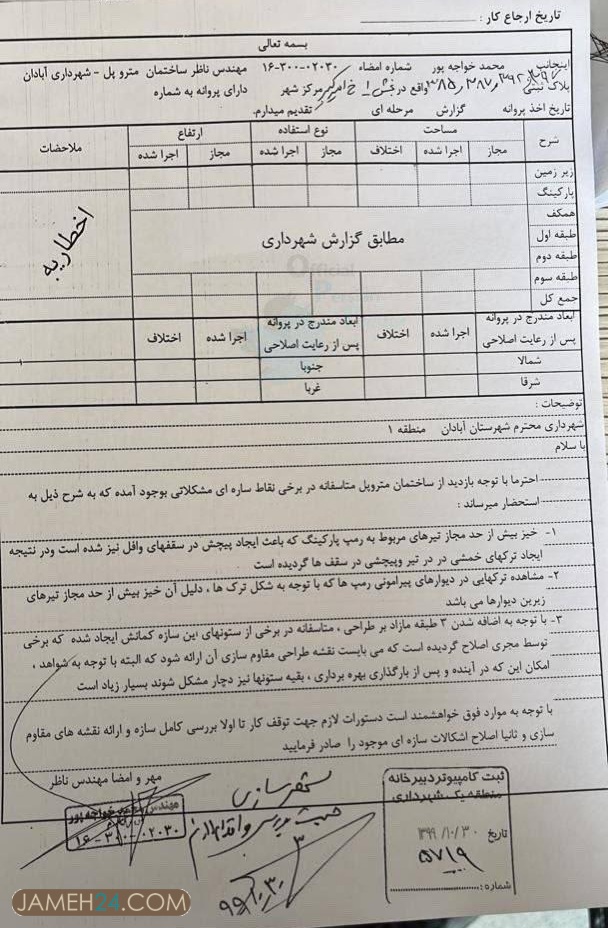 تاریخ ارجاع کار :
بسمه تعالی
اینجانب محمد خواجه پور شماره امضاء ۰۲۰۳۰-۳۰۰-۱۶ مهندس ناظر ساختمان مترو پل - شهرداری آبادان
پلاک ثبتی ۳۸۵ , ۳۸۷ , واقع در بخش ۱ خ امیرکبیر مرکز شهر دارای پروانه به شماره
تاریخ اخذ پروانه گزارش مرحله ای تقدیم میدارم.
شرح مساحت نوع استفاده ارتفاع ملاحضات
مجاز اجرا شده اختلاف مجاز اجرا شده مجاز اجرا شده
زیر زمین
پارکینگ
همکف
طبقه اول
مطابق گزارش شهرداری
اخطاریه
طبقه دوم
طبقه سوم
جمع کل
ابعاد مندرج در پروانه پس از رعایت اصلاحی اجرا شده اختلاف ابعاد مندرج در پروانه پس از رعایت اصلاحی اجرا شده اختلاف
شمالا جنوبا
شرقا غربا
توضیحات :
شهرداری محترم شهرستان آبادان منطقه ۱
با سلام
احترما با توجه بازدید از ساختمان متروپل متاسفانه در برخی نقاط سازه ای مشکلاتی بوجود آمده که به شرح ذیل به
استحضار میرساند :
۱- خیز بیش از حد مجاز تیرهای مربوط به رمپ پارکینگ که باعث ایجاد پیچش در سقفهای وافل نیز شده است ودر نتیجه
ایجاد ترکهای خمشی در در تیر وپیچشی در سقف ها گردیده است
۲- مشاهده ترکهایی در دیوارهای پیرامونی رمپ ها که با توجه به شکل ترک ها ، دلیل آن خیز بیش از حد مجاز تیرهای
زیرین دیوارها می باشد
۳- با توجه به اضافه شدن ۳ طبقه مازاد بر طراحی ، متاسفانه در برخی از ستونهای این سازه کمانش ایجاد شده که برخی
توسط مجری اصلاح گردیده است که می بایست نقشه طراحی مقاوم سازی آن ارائه شود که البته با توجه به شواهد ،
امکان این که در آینده و پس از بارگذاری بهره برداری ، بقیه ستونها نیز دچار مشکل شوند بسیار زیاد است
با توجه به موارد فوق خواهشمند است دستورات لازم جهت توقف کار تا اولا بررسی کامل سازه و ارائه نقشه های مقاوم
سازی و ثانیا اصلاح اشکالات سازه ای موجود را صادر فرمایید
مهر و امضا مهندس ناظر
مهندس خواجه پور
۱۶-۳۰۰-۰۲۰۳۰
جهت بررسی و اقدام لازم
ثبت کامپیوتر دبیرخانه
منطقه یک شهرداری
تاریخ ۱۳۹۹/۱۰/۳۰
۵۷۱۹
شماره:
JAMEH24.COM